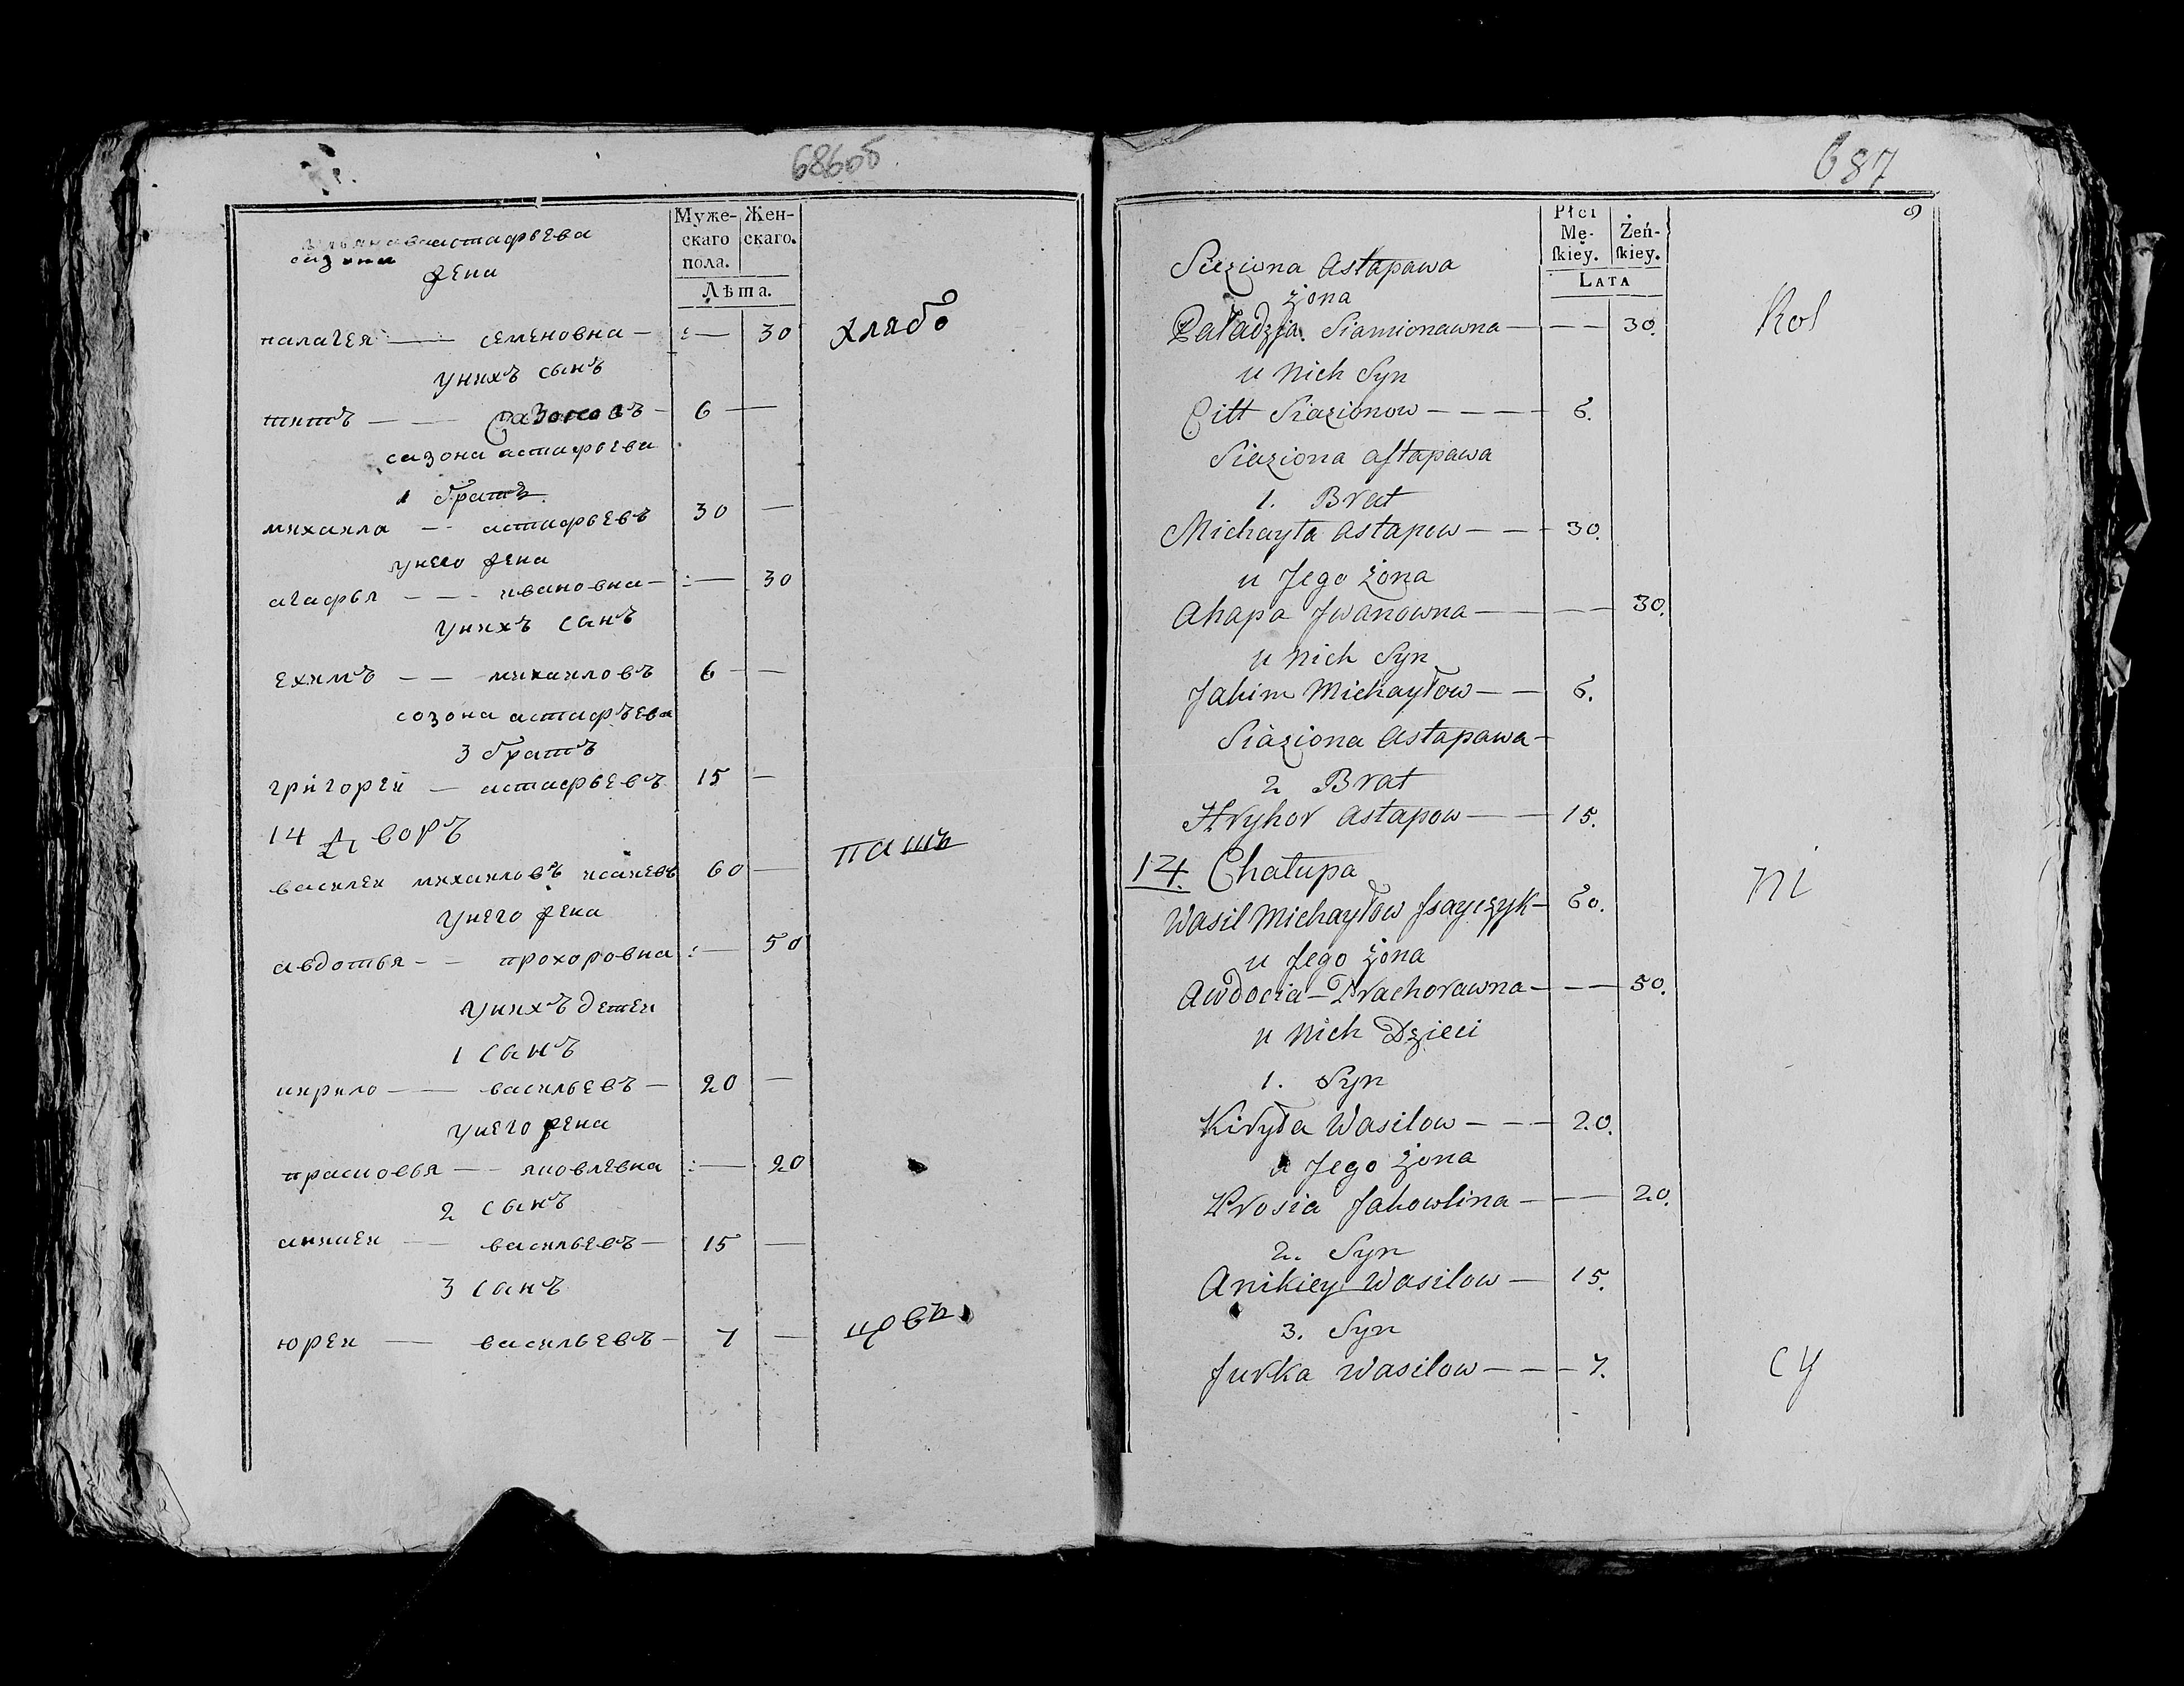 686об
Муже-
скаго
пола.
Жен-
скаго.
Лѣта.
астафьева
сазона
жена
палагея — семеновна — 30 хлѣбо
унихъ сынъ
титъ — Сазоновъ — 6 —
сазона астафьева
1 братъ
михаила — астафьевъ 30 —
унего жена
агафья — ивановна — 30
унихъ санъ
ехимъ — михаиловъ 6 —
созона астафъева
3 братъ
григорей — астафьевъ 15 —
14 Дворъ
пашъ
василеи михаиловъ исаиевъ 60 —
унего жена
авдотья — прохоровна — 50
унихъ детеи
1 санъ
кирило — васильевъ — 20 —
унего жена
прасковья — яковлевна — 20
2 сынъ
аникеи — васильевъ — 15 —
3 санъ
юреи — васильевъ — 7 —
687
9
Płci
Mę-
ſkiey.
Żeń-
ſkiey.
LATA
Siaziona Astapawa
żona
Kol
Paładzja Siamionawna — — — 30.
u Nich Syn
Citt Siazionow — — — 6.
Siaziona Astapawa
1. Brat
Michayła Astapow — — 30.
u Jego żona
Ahapa Jwanowna — — — 30.
u Nich Syn
Jakim Michayłow — — 6.
Siaziona Astapawa —
2 Brat
Hryhor Astapow — — 15.
14. Chałupa
ni
Wasil Michayłow Jsayczyk — 60.
u Jego żona
Awdocia — Prachorawna — — — 50.
u Nich Dzieci
1. Syn
Kiryła Wasilow — — — 20.
u Jego żona
Prosia Jakowlina — — 20.
2. Syn
Anikiey Wasilow — 15.
3. Syn
Jurka Wasilow — — — 7.
cy